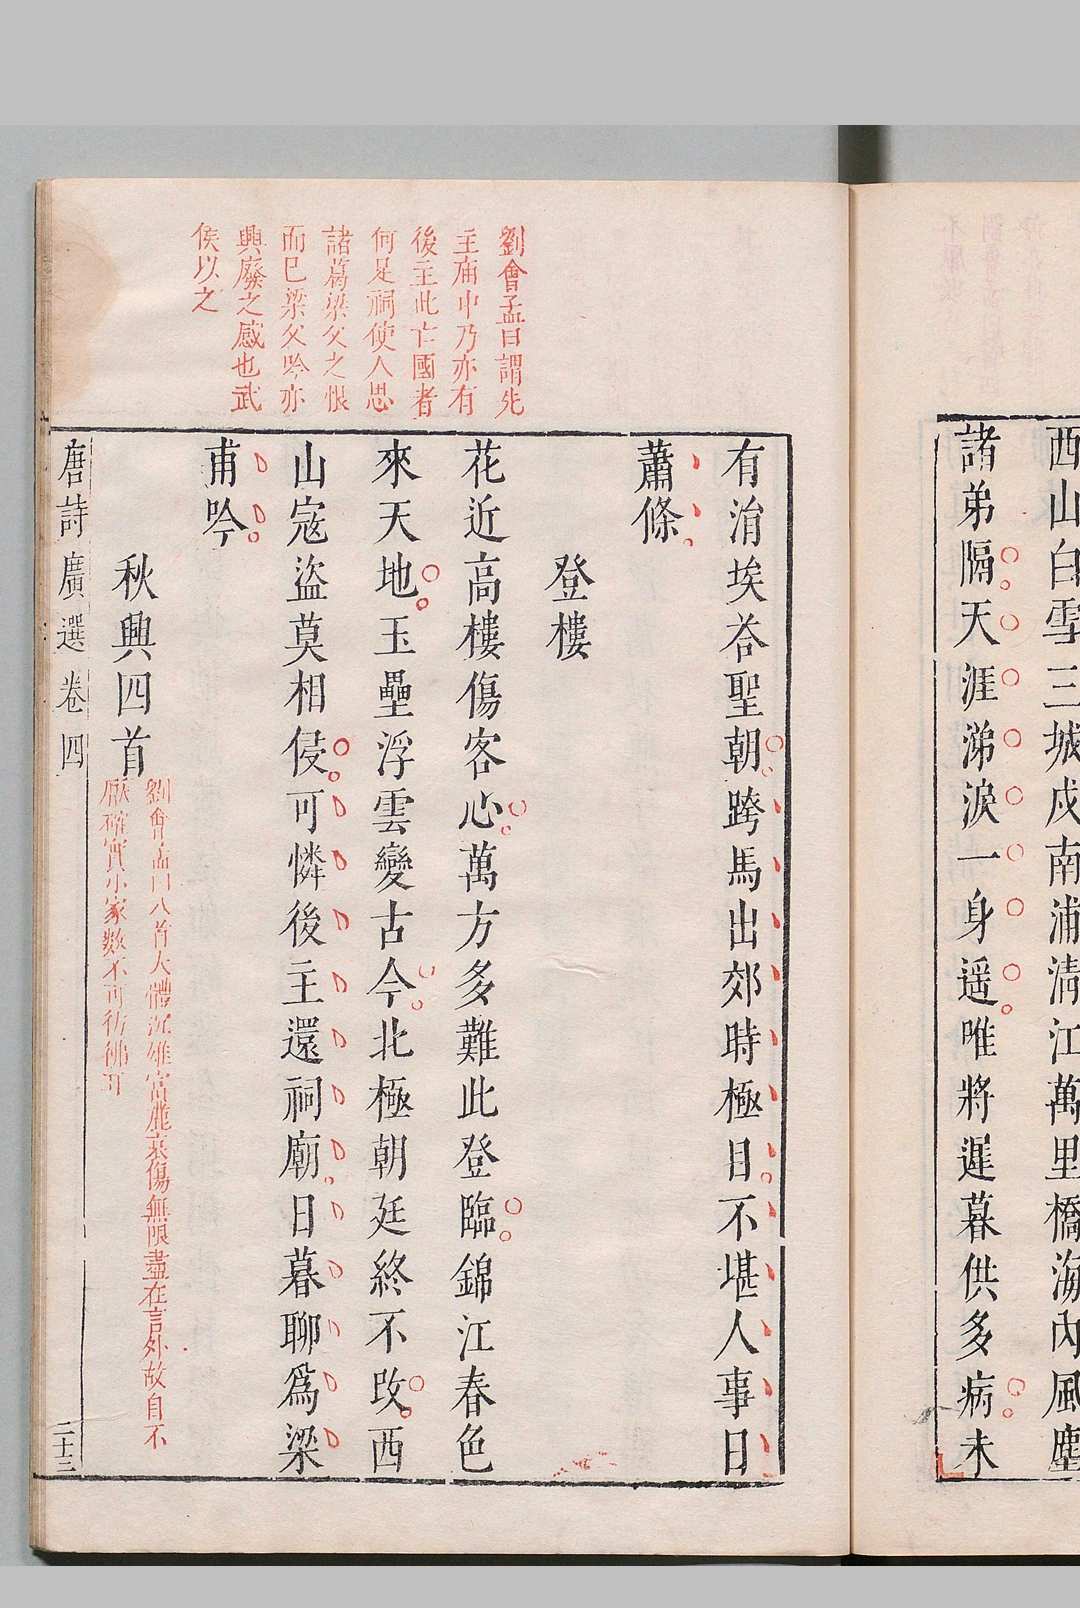 西山白雪三城戍南浦清江萬里橋海內風塵
諸弟隔天涯涕淚一身遥唯將遲暮供多病未
有涓埃答聖朝跨馬出郊時極目不堪人事日
蕭條
登樓
花近高樓傷客心萬方多難此登臨錦江春色
來天地玉壘浮雲變古今北極朝廷終不改西
山寇盜莫相侵可憐後主還祠廟日暮聊爲梁
甫吟
秋興四首
劉會孟曰八首大體沉雄富麗哀傷無限盡在言外故自不
厭確實小家數不可彷彿耳
劉會孟曰謂先
主廟中乃亦有
後主此亡國者
何足祠使人思
諸葛梁父之恨
而已梁父吟亦
興廢之感也武
侯以之
唐詩廣選卷四
二十三